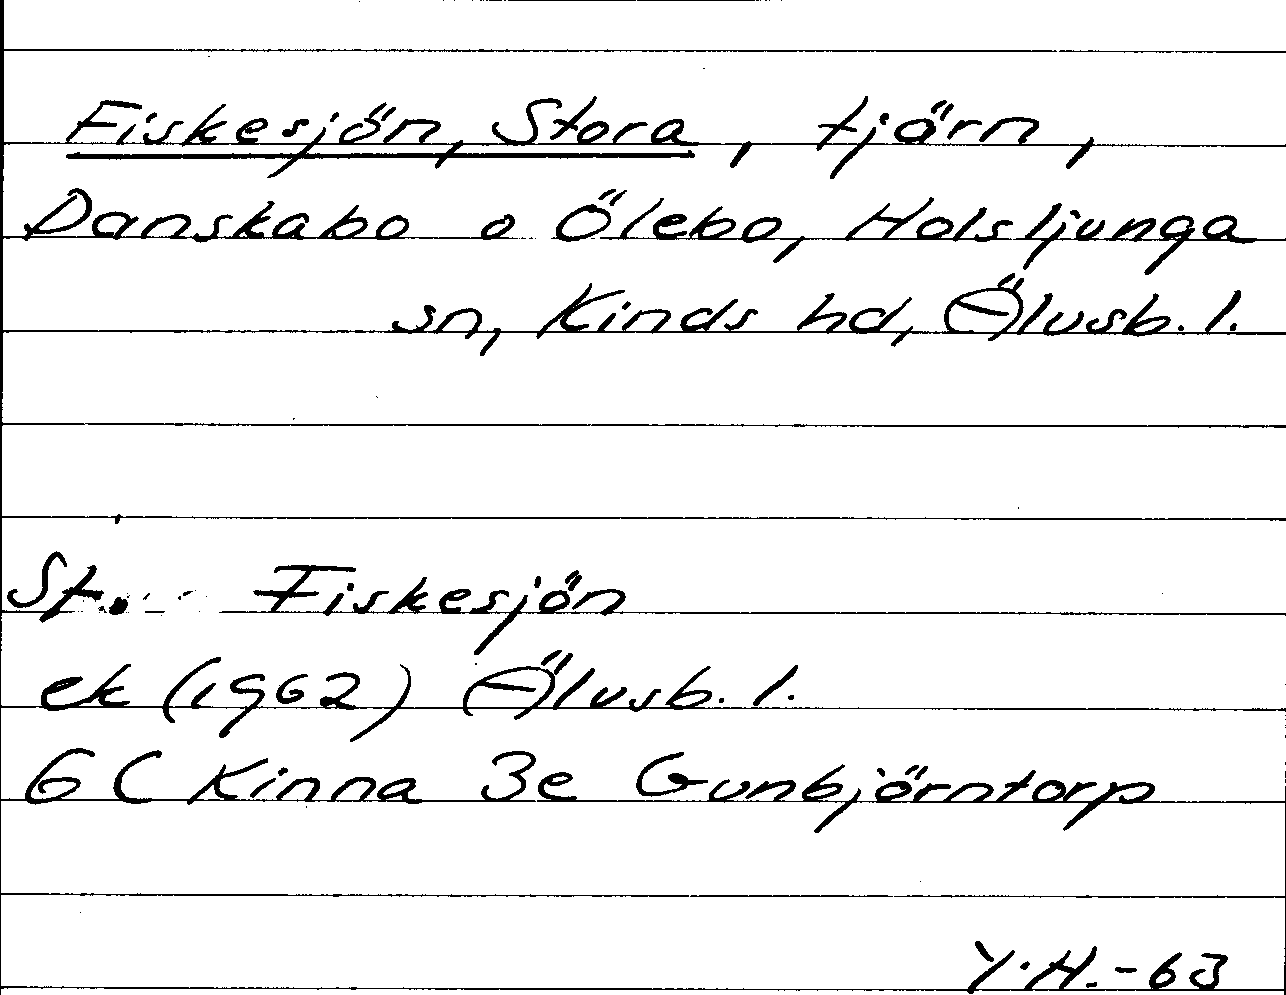 Fiskesjön, Stora, tjärn,
Danskabo o Ölebo, Holsljunga
sn, Kinds hd, Älvsb. l.
St. Fiskesjön
ek (1962) Älvsb. l.
6 C Kinna 3e Gunbjörntorp
Y.H.-63